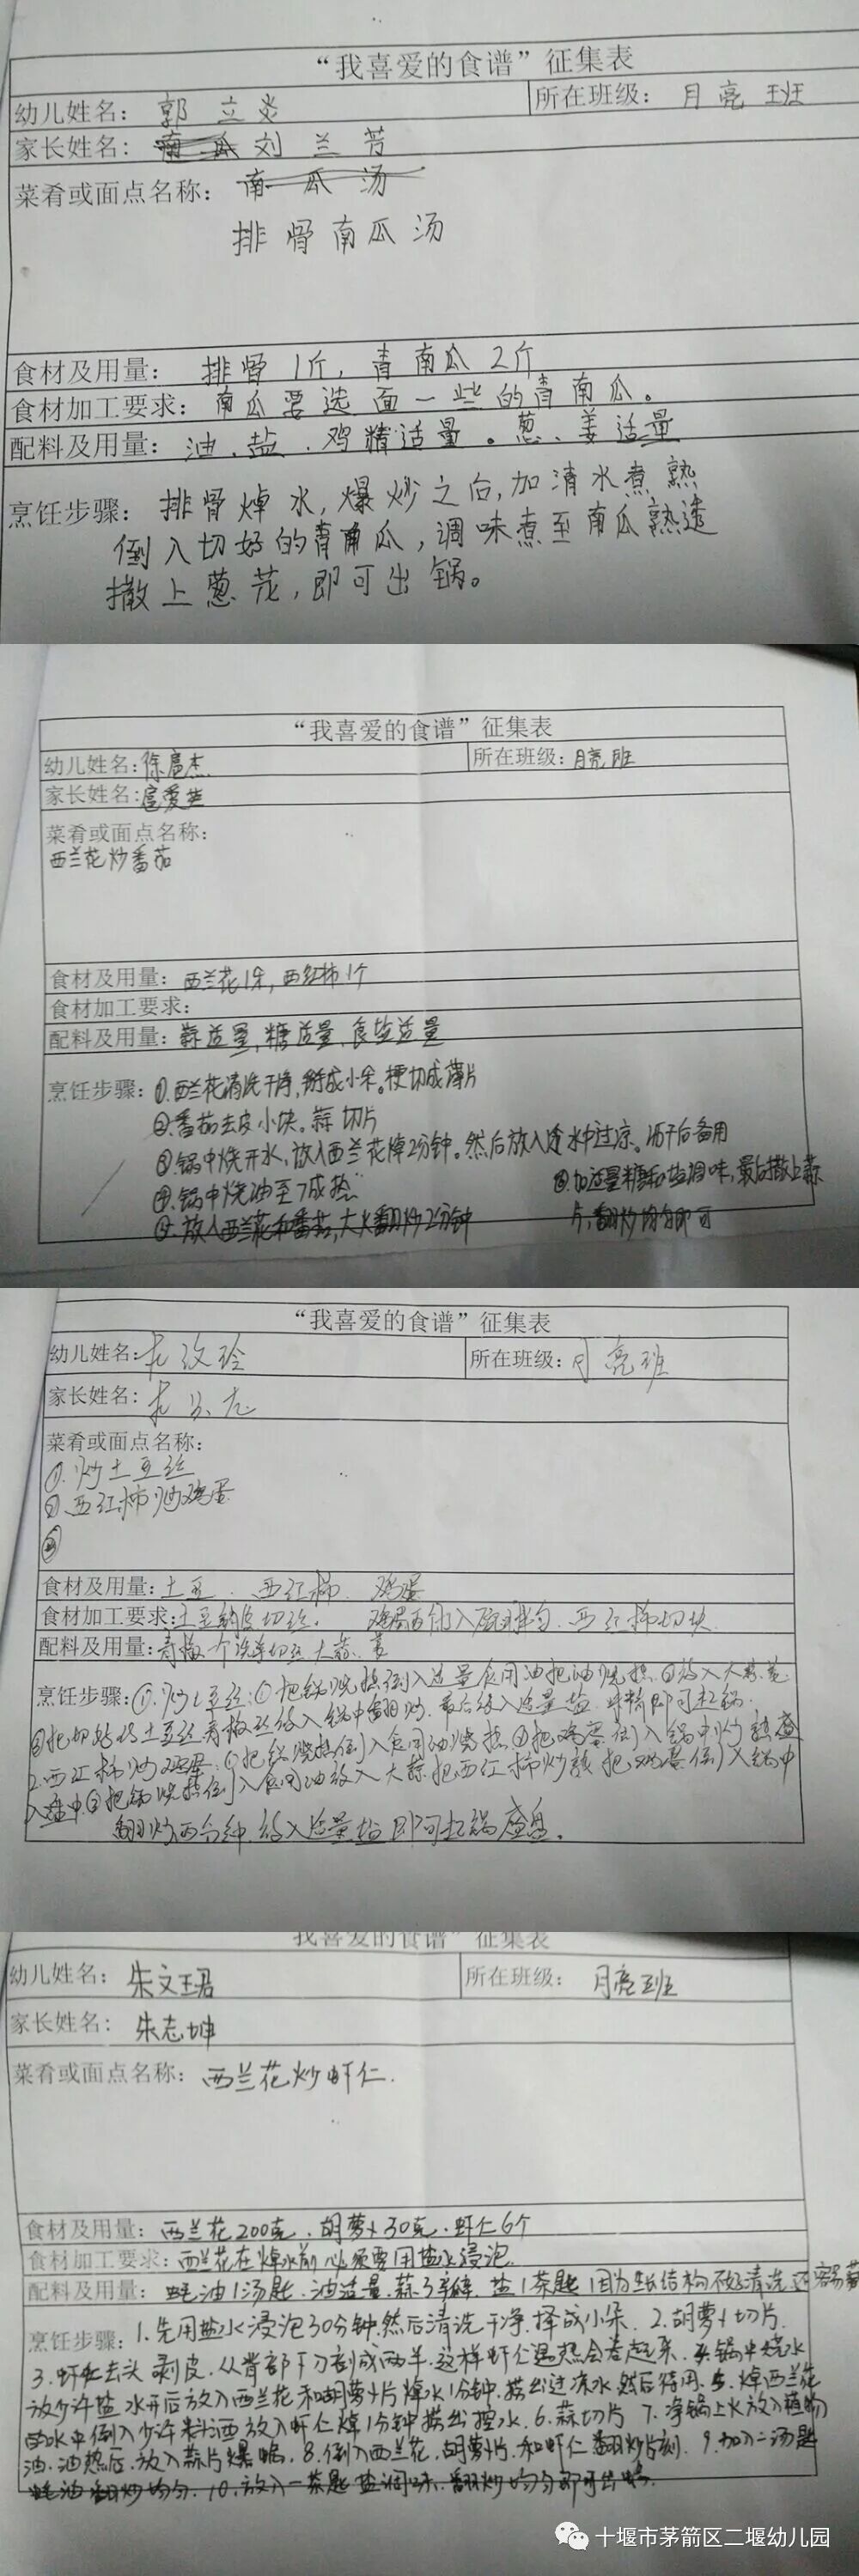 “我喜爱的食谱”征集表
幼儿姓名：郭立炎 所在班级：月亮班
家长姓名：南瓜刘兰芳
菜肴或面点名称：南瓜汤
排骨南瓜汤
食材及用量：排骨1斤，青南瓜2斤
食材加工要求：南瓜要选面一些的青南瓜。
配料及用量：油、盐、鸡精适量。葱、姜适量
烹饪步骤：排骨焯水，爆炒之后，加清水煮熟
倒入切好的青南瓜，调味煮至南瓜熟透
撒上葱花，即可出锅。
“我喜爱的食谱”征集表
幼儿姓名：徐扈杰 所在班级：月亮班
家长姓名：扈爱
菜肴或面点名称：
西兰花炒番茄
食材及用量：西兰花1朵，西红柿1个
食材加工要求：
配料及用量：蒜适量，糖适量，食盐适量
烹饪步骤：①.西兰花清洗干净，掰成小朵。梗切成薄片
②.番茄去皮小块。蒜切片
③锅中烧开水，放入西兰花焯2分钟。然后放入冷水中过凉。沥干后备用
④.锅中烧油至7成热
⑤.放入西兰花和番茄，大火翻炒2分钟
⑥.加适量糖和盐调味，最后撒上蒜
片，翻炒均匀即可
“我喜爱的食谱”征集表
幼儿姓名：玲 所在班级：月亮班
家长姓名：
菜肴或面点名称：
①.炒土豆丝
②.西红柿炒鸡蛋
③
食材及用量：土豆、西红柿、鸡蛋
食材加工要求：土豆切丝. 鸡蛋倒入 西红柿切块
配料及用量：青椒一个洗净切丝 大蒜、姜
烹饪步骤：①.炒土豆丝：①把锅烧热倒入适量食用油把油烧热.②放入大蒜、姜
③把切好的土豆丝青椒丝放入锅中翻炒.最后放入适量盐.味精即可起锅.
2.西红柿炒鸡蛋：①把锅烧热倒入食用油烧热②把鸡蛋倒入锅中炒熟盛
入碗中③把锅烧热倒入食用油放入大蒜.把西红柿炒熟把鸡蛋倒入锅中
翻炒两分钟.放入适量盐即可起锅盛盘。
“我喜爱的食谱”征集表
幼儿姓名：朱文珺 所在班级：月亮班
家长姓名：朱志坤
菜肴或面点名称：西兰花炒虾仁.
食材及用量：西兰花200克、胡萝卜30克、虾仁6个
食材加工要求：西兰花在焯水前必须要用盐水浸泡
配料及用量：蚝油1汤匙、油适量、蒜3瓣、盐1茶匙 因为生长结构不好清洗还容易
烹饪步骤：1.先用盐水浸泡30分钟,然后清洗干净.择成小朵. 2.胡萝卜切片.
3.虾仁去头剥皮.从背部下刀剖成两半.这样虾仁遇热会卷起来. 4.锅中烧水
放少许盐水开后放入西兰花和胡萝卜片焯水1分钟.捞出过凉水.然后待用. 5.焯西兰花
的水中倒入少许料酒放入虾仁焯1分钟捞出控水. 6.蒜切片 7.净锅上火放入植物
油.油热后.放入蒜片爆锅. 8.倒入西兰花.胡萝卜片.和虾仁翻炒片刻. 9.加入一汤匙
蚝油翻炒均匀. 10.放入一茶匙盐调味.翻炒均匀即可出锅.
十堰市茅箭区二堰幼儿园